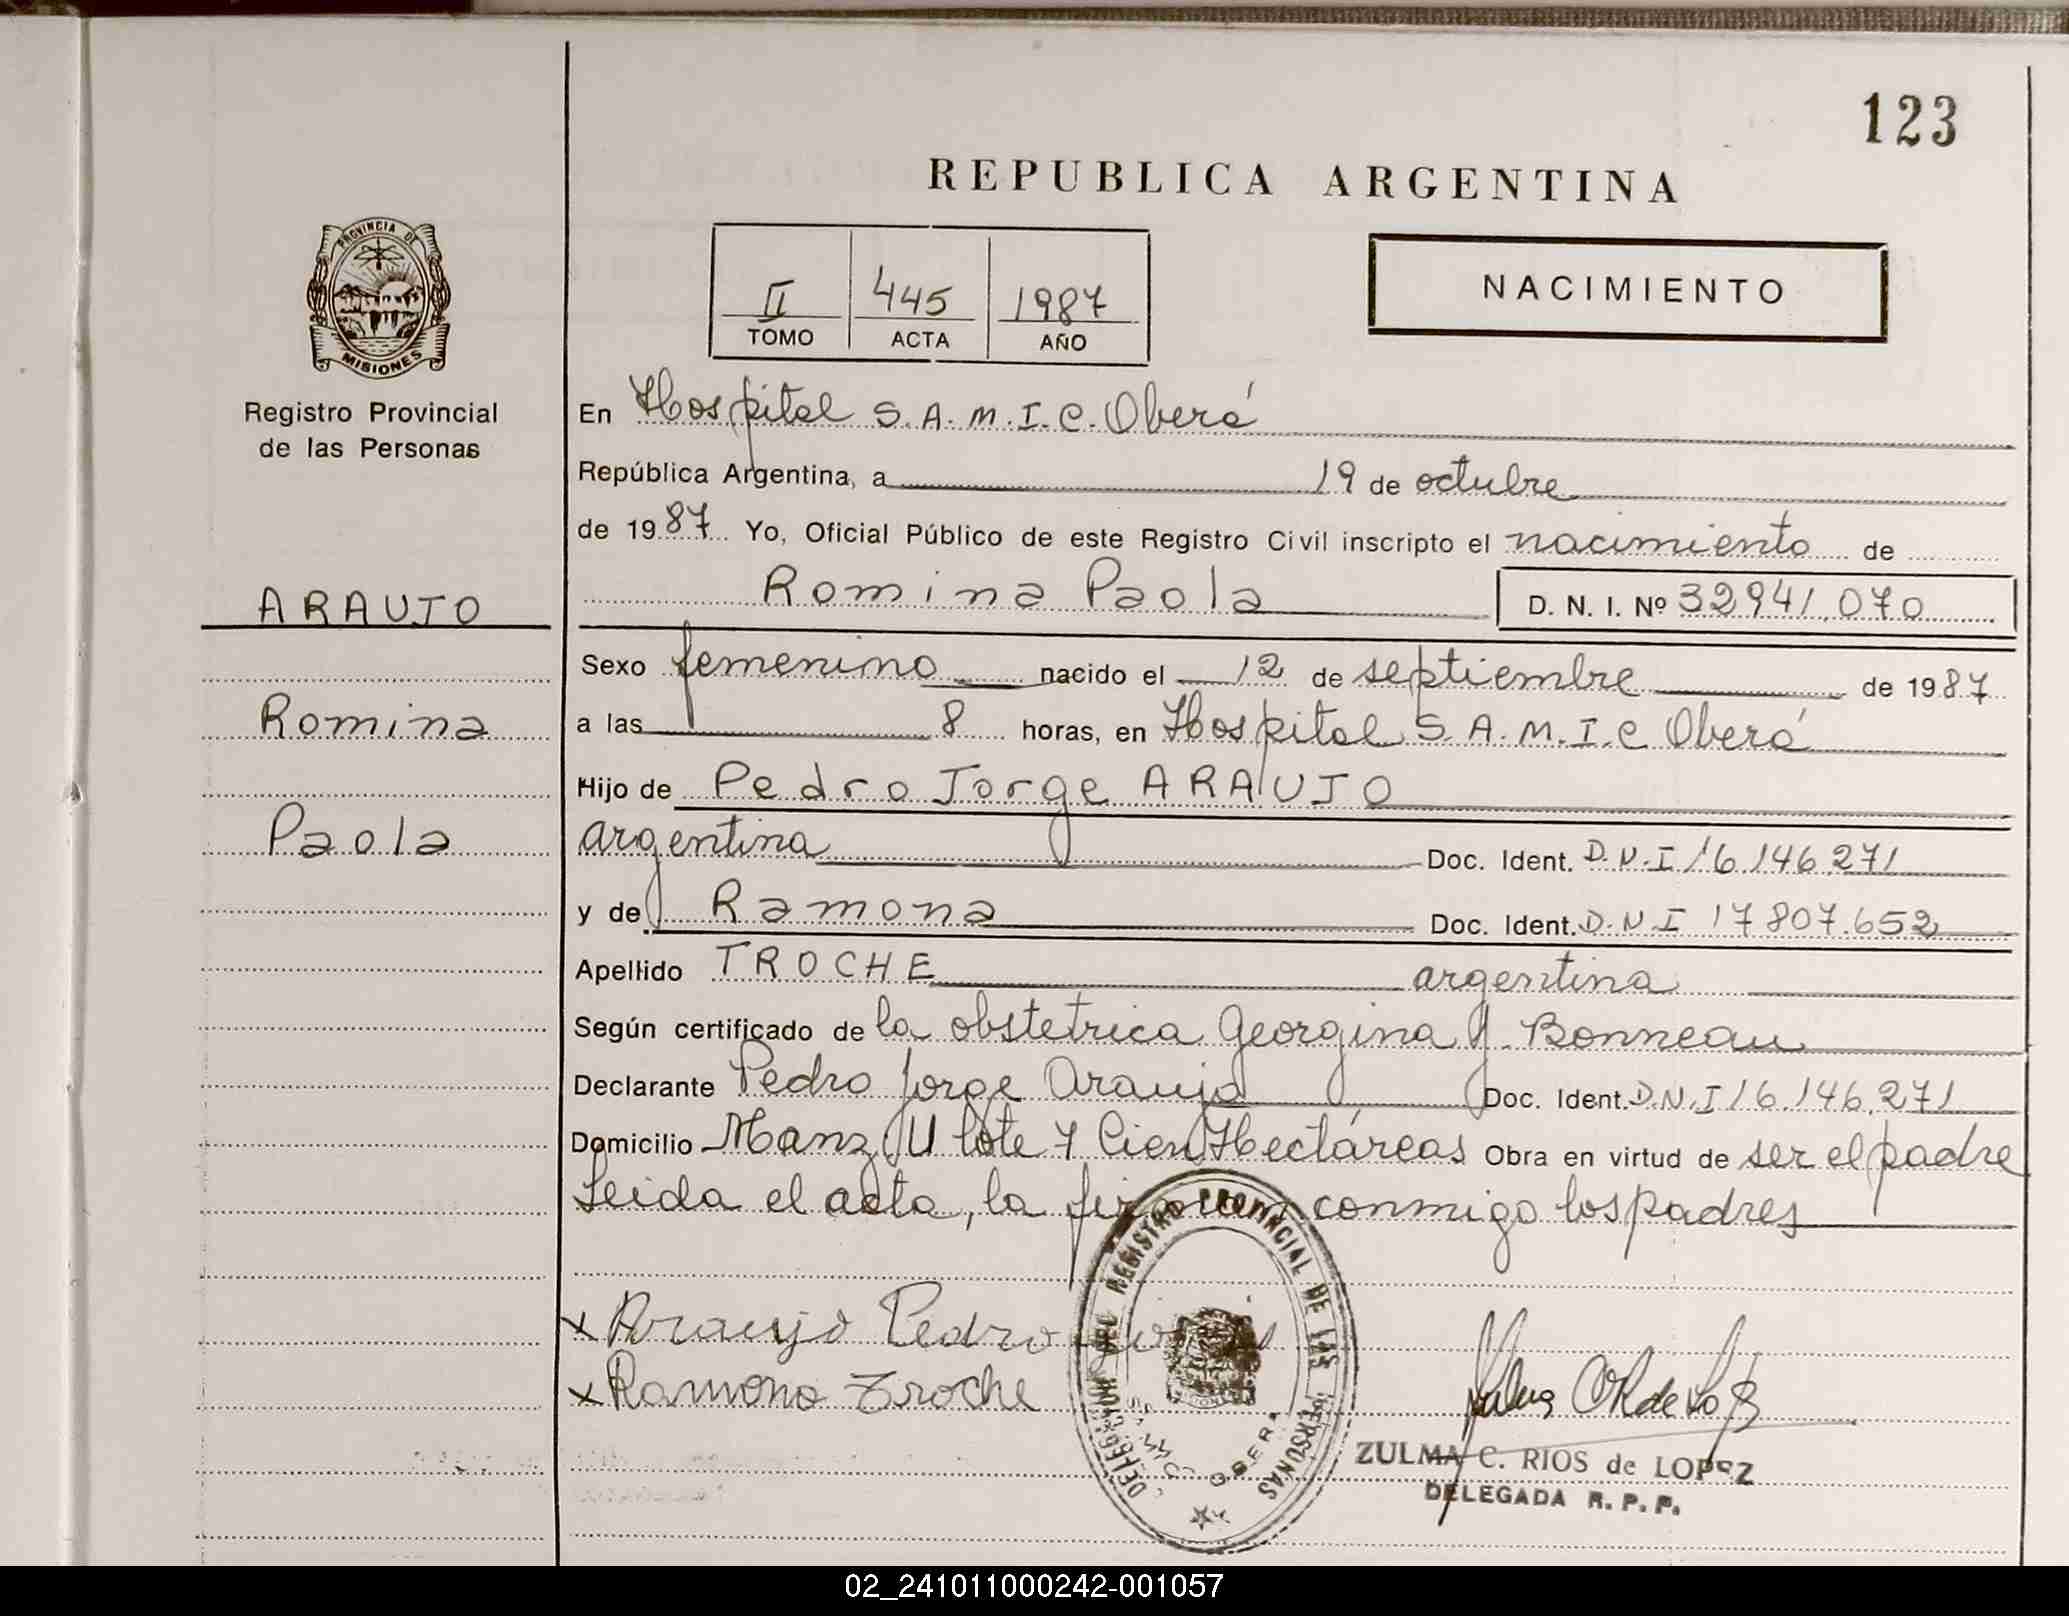 123
REPUBLICA ARGENTINA
PROVINCIA DE
MISIONES
Registro Provincial
de las Personas
II 445 1987
TOMO ACTA AÑO
NACIMIENTO
En Hospital S.A.M.I.C. Oberá
República Argentina, a 19 de octubre
de 1987 Yo, Oficial Público de este Registro Civil inscripto el nacimiento de
ARAUJO
Romina Paola D. N. I. Nº 32941.070
Sexo femenino nacido el 12 de septiembre de 1987
Romina
a las 8 horas, en Hospital S.A.M.I.C Oberá
Hijo de Pedro Jorge ARAUJO
Paola
argentina Doc. Ident. D.N.I 16.146.271
y de Ramona Doc. Ident. D.N.I 17807.652
Apellido TROCHE argentina
Según certificado de la obstetrica Georgina Y. Bonneau
Declarante Pedro Jorge Araujo Doc. Ident. D.N.I 16.146.271
Domicilio Manz U lote 7 Cien Hectáreas Obra en virtud de ser el padre
Leida el acta, la firman conmigo los padres
x Araujo Pedro
x Ramona Troche
DELEGACION DEL REGISTRO PROVINCIAL DE LAS PERSONAS
OBERA
ZULMA C. RIOS de LOPEZ
DELEGADA R. P. P.
02_241011000242-001057